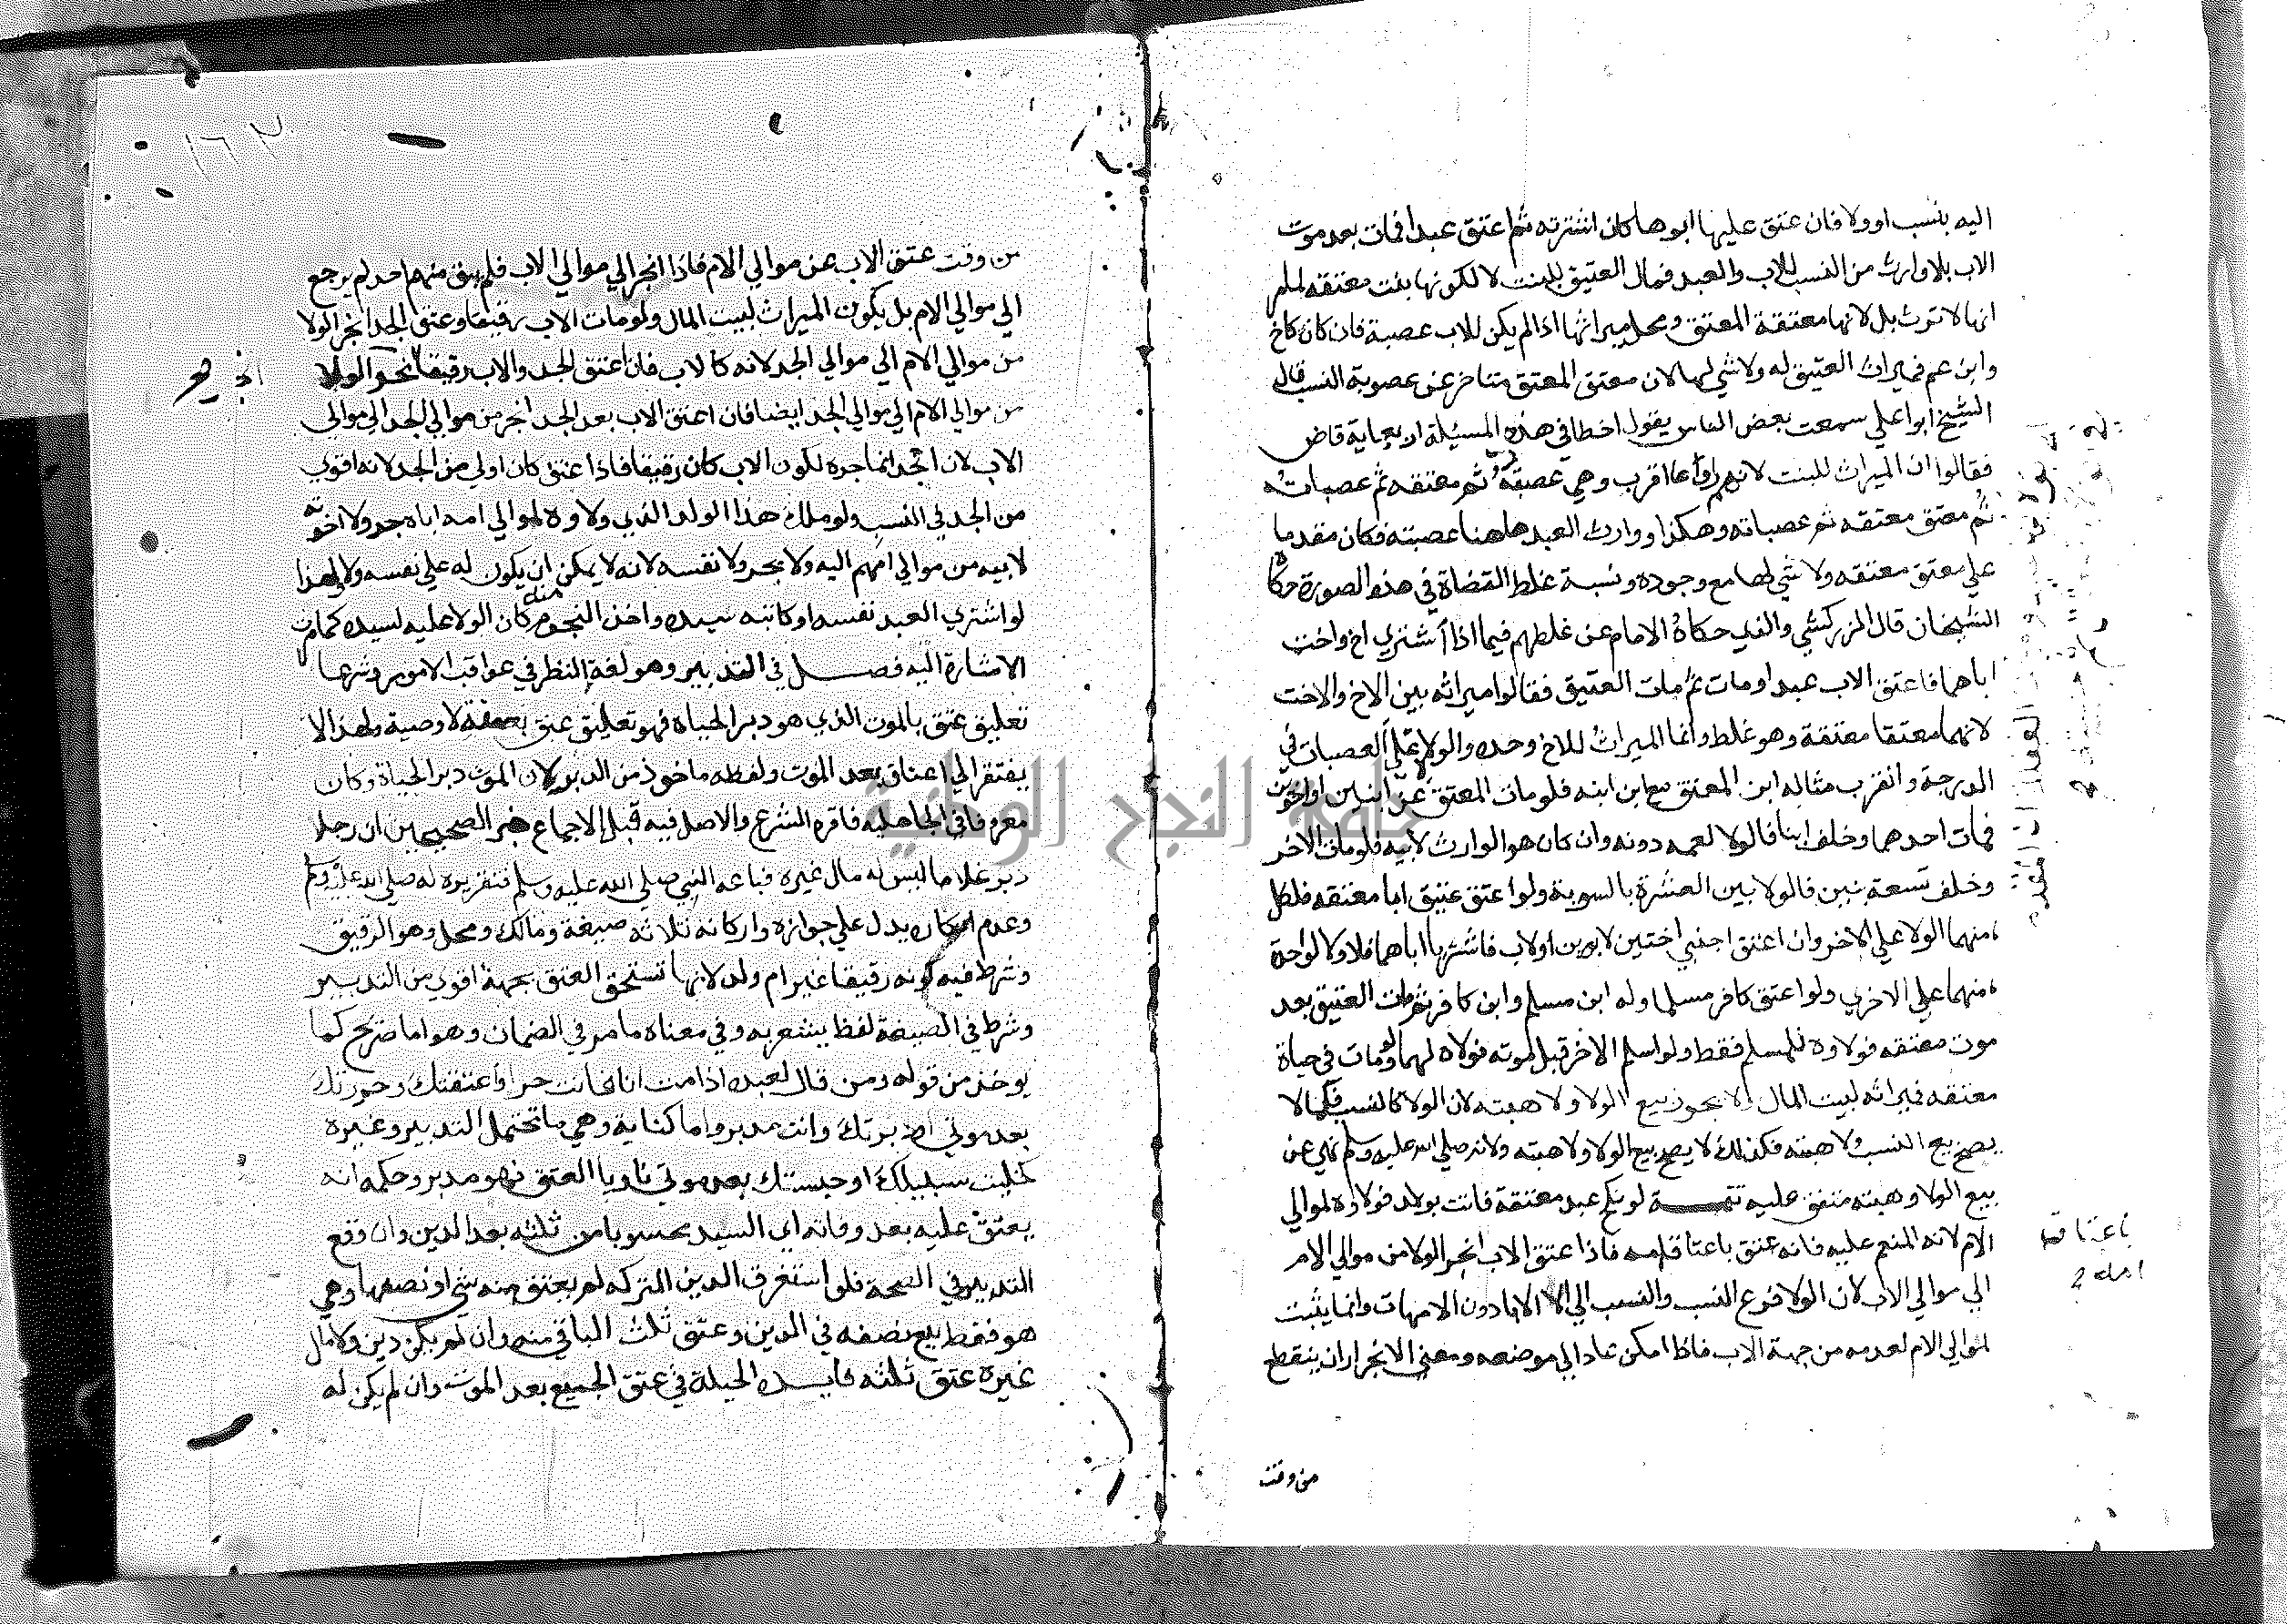 اليه بنسب او ولا فان عتق عليها ابوها كان اشترته ثم اعتق عبدا فمات بعد موت
الاب بلا وارث من النسب للاب والعبد فمال العتيق للبنت لا لكونها بنت معتقه لما مر
انها لا ترث بل لانها معتقة المعتق ومحل ميراثها اذا لم يكن للاب عصبة فان كان كاخ
وابن عم فميراث العتيق له ولا شي لها لان معتق المعتق متاخر عن عصوبة النسب قال
الشيخ ابو علي سمعت بعض الناس يقول اخطا في هذه المسيلة اربعماية قاض
فقالوا ان الميراث للبنت لانهم راوها اقرب وهي عصبة ثم معتقه ثم عصباته
ثم معتق معتقه ثم عصباته وهكذا ووارث العبد هاهنا عصبته فكان مقدما
علي معتق معتقه ولا شي لها مع وجوده ونسبة غلط القضاة في هذه الصورة حكاه
الشيخان قال الزركشي والذي حكاه الامام عن غلطهم فيما اذا اشتري اخ واخت
اباهما فاعتق الاب عبدا ومات ثم مات العتيق فقالوا ميراثه بين الاخ والاخت
لانهما معتقا معتقه وهو غلط وانما الميراث للاخ وحده والولا لاعلي العصبات في
الدرجة والقرب مثاله ابن المعتق مع ابن ابنه فلو مات المعتق عن ابنين او اخوين
فمات احدهما وخلف ابنا فالولا لعمه دونه وان كان هو الوارث لابيه فلو مات الاخر
وخلف تسعة بنين فالولا بين العشرة بالسوية ولو اعتق عتيق ابا معتقه فلكل
منهما الولا علي الاخر وان اعتق اجنبي اختين لابوين او لاب فاشتريا اباهما فلا ولا لواحدة
منهما علي الاخري ولو اعتق كافر مسلما وله ابن مسلم وابن كافر ثم مات العتيق بعد
موت معتقه فولاوه للمسلم فقط ولو اسلم الاخر قبل موته فولاه لهما ولو مات في حياة
معتقه فميراثه لبيت المال ولا يجوز بيع الولا ولا هبته لان الولا كالنسب فكما لا
يصح بيع النسب ولا هبته فكذلك لا يصح بيع الولا ولا هبته ولانه صلي الله عليه وسلم نهي عن
بيع الولا وهبته متفق عليه تتمة لو نكح عبد معتقة فاتت بولد فولاوه لموالي
الام لانه المنعم عليه فانه عتق باعتاق امه فاذا عتق الاب انجر الولا من موالي الام
الي موالي الاب لان الولا فرع النسب والنسب الي الابا دون الامهات وانما يثبت
لموالي الام لعدمه من جهة الاب فاذا امكن عاد الي موضعه ومعني الانجرار ان ينقطع
من وقت
باعتاق
امه
١٦٢
من وقت عتق الاب عن موالي الام فاذا انجر الي موالي الاب فلم يبق منهم احد لم يرجع
الي موالي الام بل يكون الميراث لبيت المال ولو مات الاب رقيقا وعتق الجد انجر الولا
من موالي الام الي موالي الجد لانه كالاب فان اعتق الجد والاب رقيقا انجر الولا
من موالي الام الي موالي الجد ايضا فان اعتق الاب بعد الجد انجر من موالي الجد الي موالي
الاب لان الجد انما جره لكون الاب كان رقيقا فاذا عتق كان اولي من الجد لانه اقوي
من الجد في النسب ولو ملك هذا الولد الذي ولاوه لموالي امه اباه جر ولا اخوته
لابيه من موالي امهم اليه ولا يجر ولا نفسه لانه لا يمكن ان يكون له علي نفسه ولا ولهذا
لو اشتري العبد نفسه او كاتبه سيده واخذ النجوم منه كان الولا عليه لسيده كما مرت
الاشارة اليه فصل في التدبير وهو لغة النظر في عواقب الامور وشرعا
تعليق عتق بالموت الذي هو دبر الحياة فهو تعليق عتق بصفة لا وصية ولهذا لا
يفتقر الي اعتاق بعد الموت ولفظه ماخوذ من الدبر لان الموت دبر الحياة وكان
معروفا في الجاهلية فاقره الشرع والاصل فيه قبل الاجماع خبر الصحيحين ان رجلا
دبر غلاما ليس له مال غيره فباعه النبي صلي الله عليه وسلم فتقريره له صلي الله عليه وسلم
وعدم انكاره يدل علي جوازه واركانه ثلاثة صيغة ومالك ومحل وهو الرقيق
وشرط فيه كونه رقيقا غير ام ولد لانها تستحق العتق بجهة اقوي من التدبير
وشرط في الصيغة لفظ يشعر به وفي معناه ما مر في الضمان وهو اما صريح كما
يوخذ من قوله ومن قال لعبده اذا مت انا فانت حر او اعتقتك وحررتك
بعد موتي او دبرتك وانت مدبر واما كناية وهي ما تحتمل التدبير وغيره
كخليت سبيلك او حبستك بعد موتي ناويا العتق فهو مدبر وحكمه انه
يعتق عليه بعد وفاته اي السيد محسوبا من ثلثه بعد الدين وان وقع
التدبير في الصحة فلو استغرق الدين التركه لم يعتق منه شي او نصفها وهي
هو فقط بيع نصفه في الدين وعتق ثلث الباقي منه وان لم يكن دين ولا مال
غيره عتق ثلثه فايده الحيلة في عتق الجميع بعد الموت وان لم يكن له
انجر صح